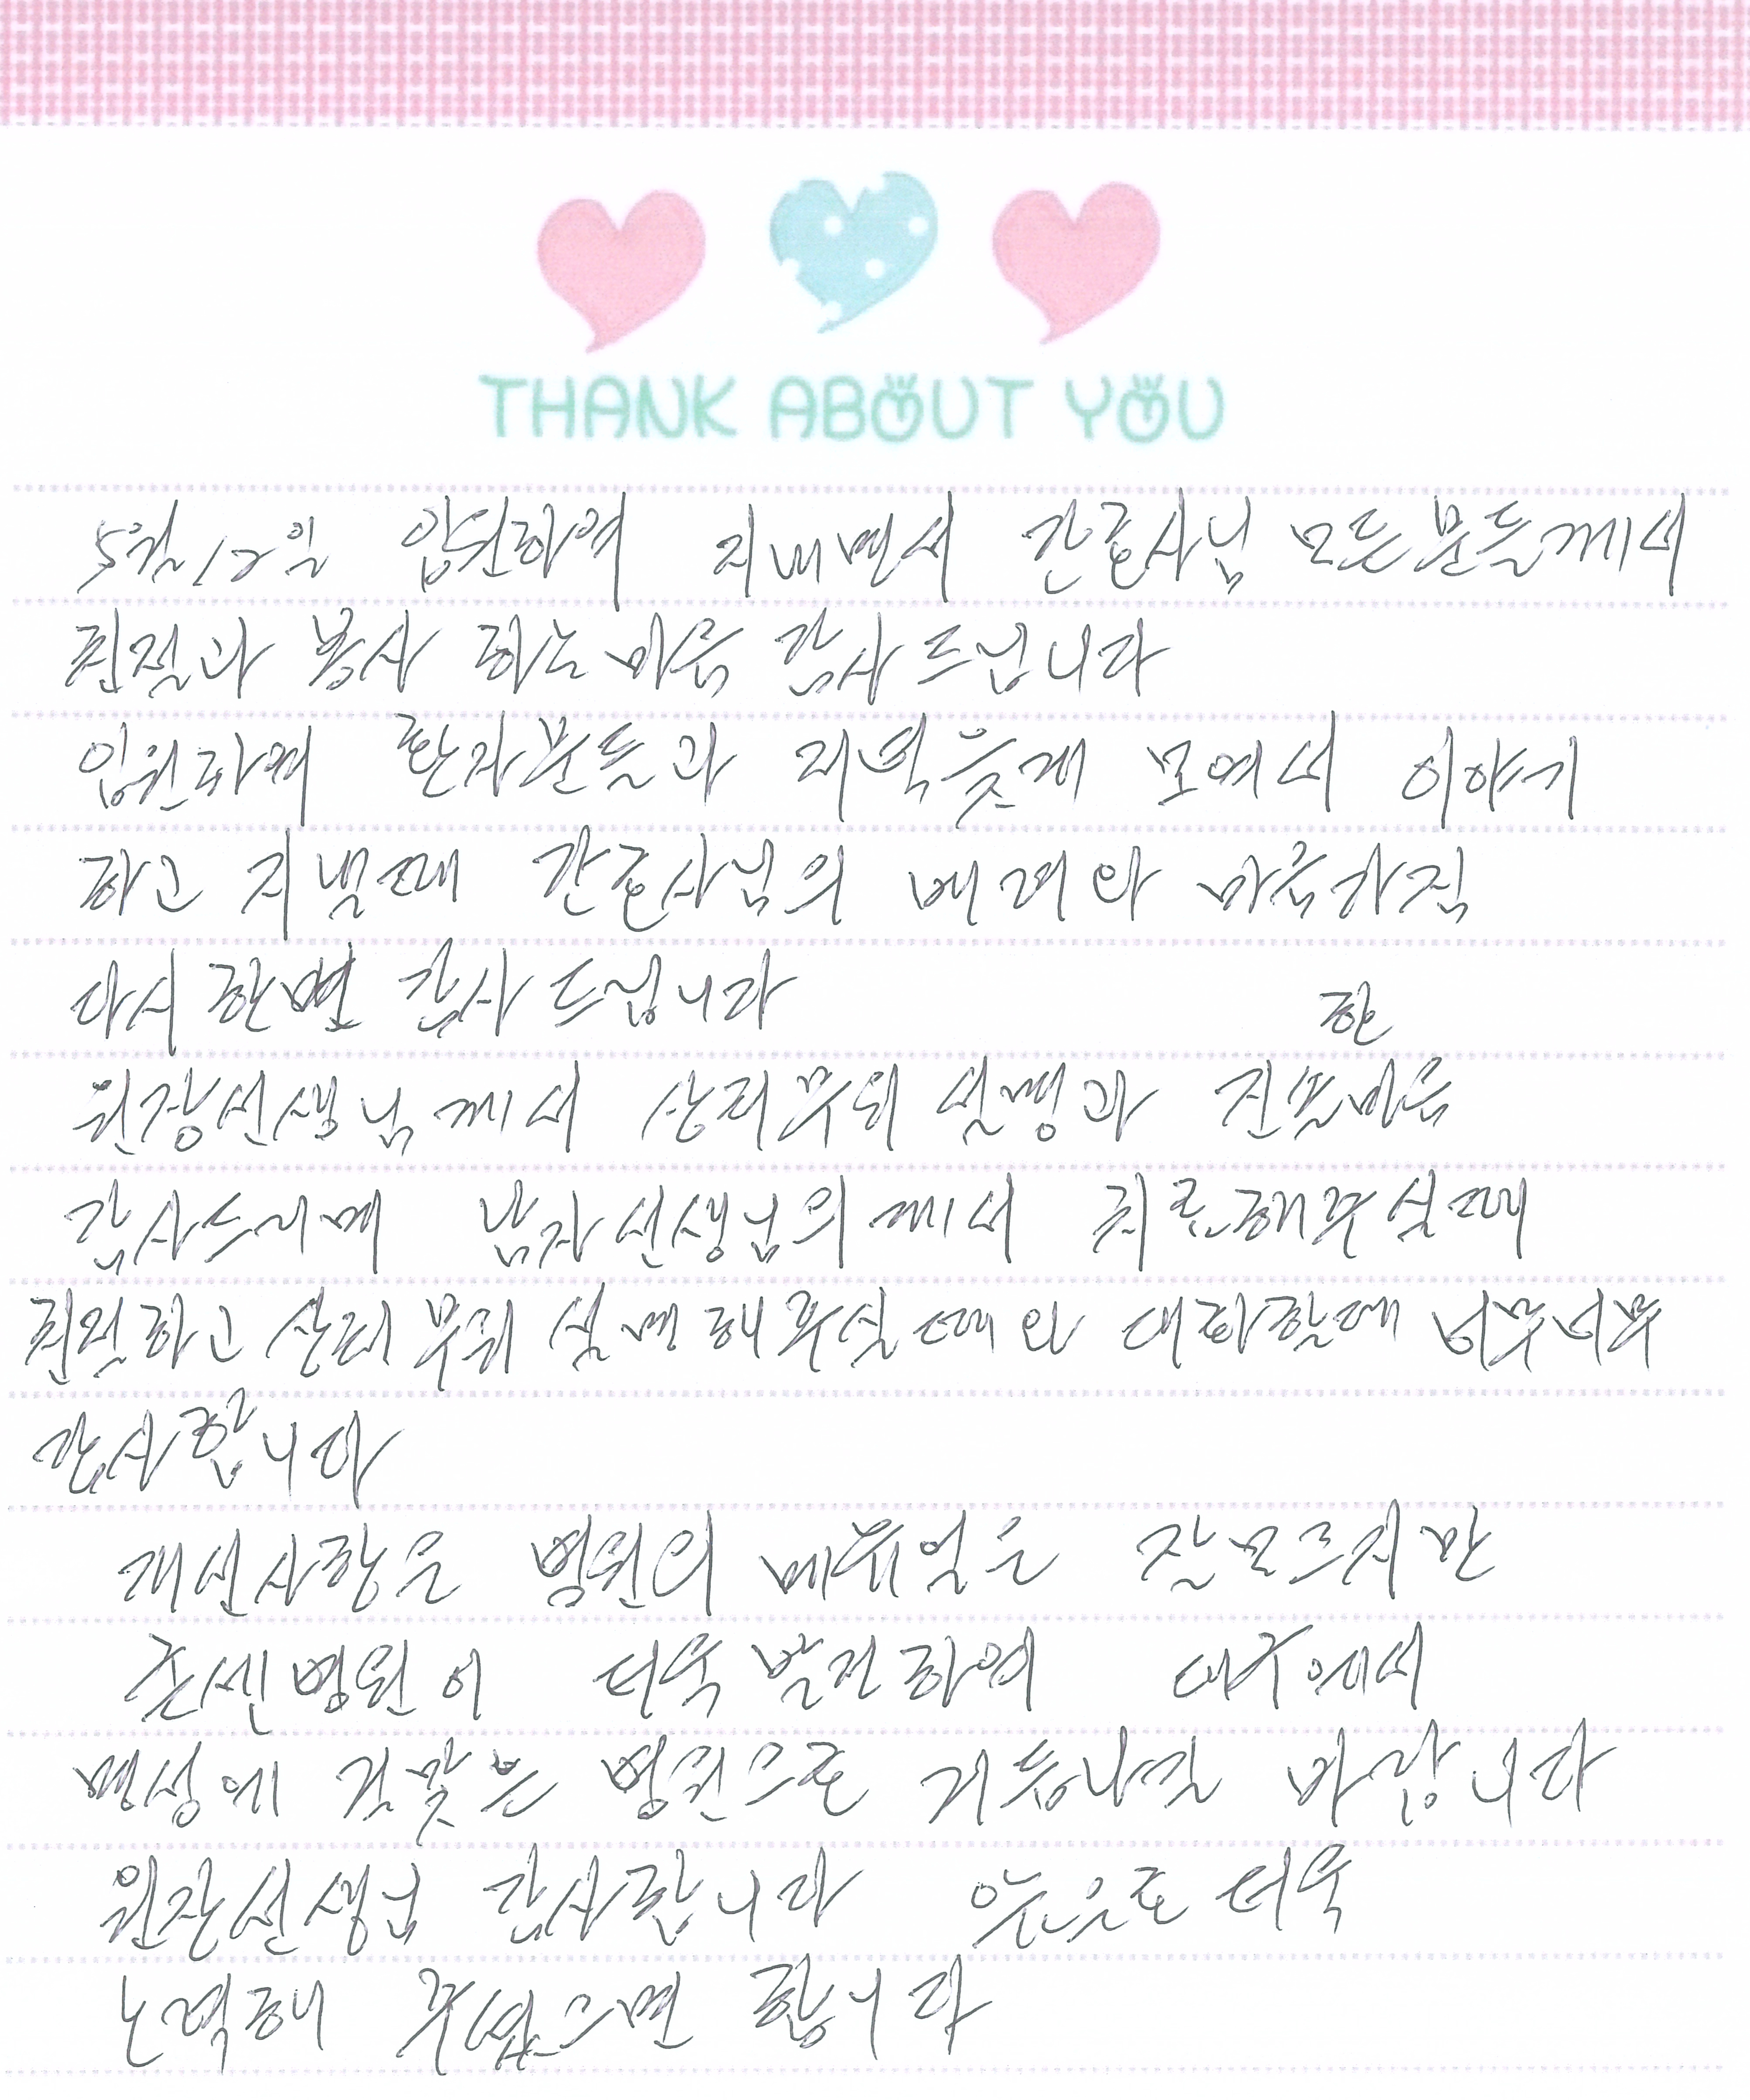 THANK ABOUT YOU
5월12일 입원하여 지내면서 간호사님 모든분들께서
친절과 봉사 하는 마음 감사 드닙니다
입원하여 환자분들과 저녁늦게 모여서 이야기
하고 지낼때 간호사님의 배려와 마음가짐
다시 한번 감사 드닙니다
원장선생님께서 상처부위 설명과 한
감사드리며 남자선생님의께서 치료해주실때
친절하고 상처부위 설명해주실때와 대화할때 너무너무
감사합니다
개선사항은 병원의 잘모르지만
존센병원이 더욱 발전하여 대구에서
명성에 걸맞는 병원으로 거듭나길 바랍니다
원장선생님 감사합니다 앞으로 더욱
노력해 주셨으면 합니다